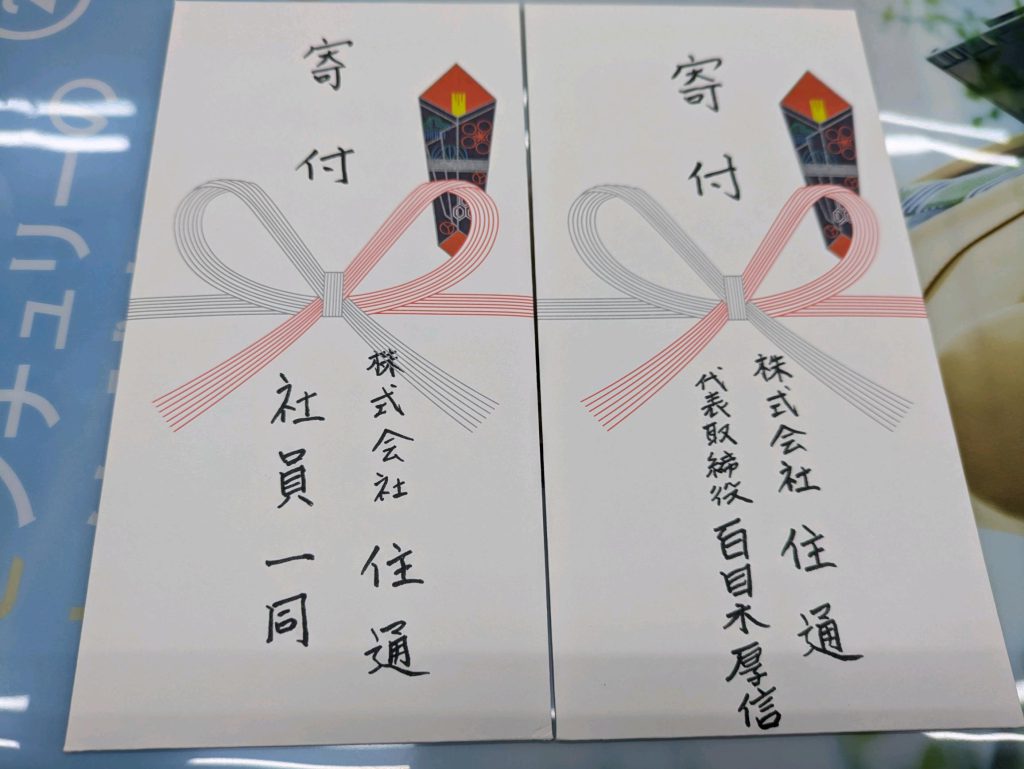 寄付
株式会社 住通
社員一同
寄付
株式会社 住通
代表取締役 百目木厚信
チュリーの